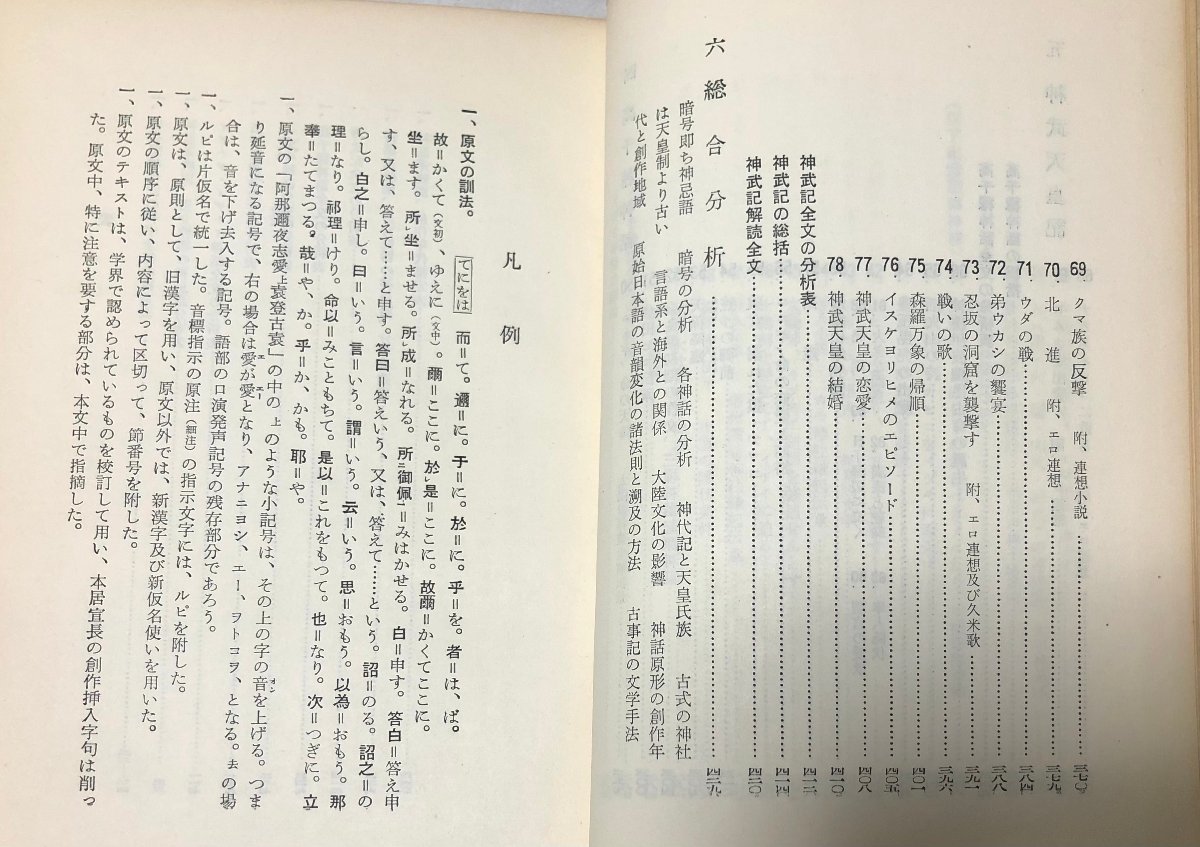 69 クマ族の反撃 附、連想小説………三七〇
70 北進 附、エロ連想………三七九
71 ウダの戦………三八四
72 弟ウカシの饗宴………三八八
73 忍坂の洞窟を襲撃す 附、エロ連想及び久米歌………三九一
74 戦いの歌………三九六
75 森羅万象の帰順………四〇一
76 イスケヨリヒメのエピソード………四〇五
77 神武天皇の恋愛………四〇八
78 神武天皇の結婚………四一〇
神武記全文の分析表………四一二
神武記の総括………四一四
神武記解読全文………四二〇
六 総合分析………四二九
暗号即ち神忌語 暗号の分析 各神話の分析 神代記と天皇氏族 古式の神社
は天皇制より古い 言語系と海外との関係 大陸文化の影響 神話原形の創作年
代と創作地域 原始日本語の音韻変化の諸法則と溯及の方法 古事記の文学手法
凡例
一、原文の訓法。 てにをは 而=て。邇=に。于=に。於=に。乎=を。者=は、ば。
故=かくて(文初)、ゆえに(文中)。爾=ここに。於レ是=ここに。故爾=かくてここに。
坐=ます。所レ坐=ませる。所レ成=なれる。所二御佩一=みはかせる。白=申す。答白=答え申
す、又は、答えて……と申す。答曰=答えいう、又は、答えて……という。詔=のる。詔之=の
らし。白之=申し。曰=いう。言=いう。謂=いう。云=いう。思=おもう。以為=おもう。那
理=なり。祁理=けり。命以=みこともちて。是以=これをもつて。也=なり。次=つぎに。立
奉=たてまつる。哉=や、か。乎=か、かも。耶=や。
一、原文の「阿那邇夜志愛上袁登古袁」の中の上のような小記号は、その上の字の音を上げる。つま
り延音になる記号で、右の場合は愛が愛となり、アナニヨシ、エー、ヲトコヲ、となる。去の場
合は、音を下げ去入する記号。語部のロ演発声記号の残存部分であろう。
一、ルビは片仮名で統一した。音標指示の原注(細注)の指示文字には、ルビを附した。
一、原文は、原則として、旧漢字を用い、原文以外では、新漢字及び新仮名使いを用いた。
一、原文の順序に従い、内容によって区切って、節番号を附した。
一、原文のテキストは、学界で認められているものを校訂して用い、本居宣長の創作挿入字句は削っ
た。原文中、特に注意を要する部分は、本文中で指摘した。